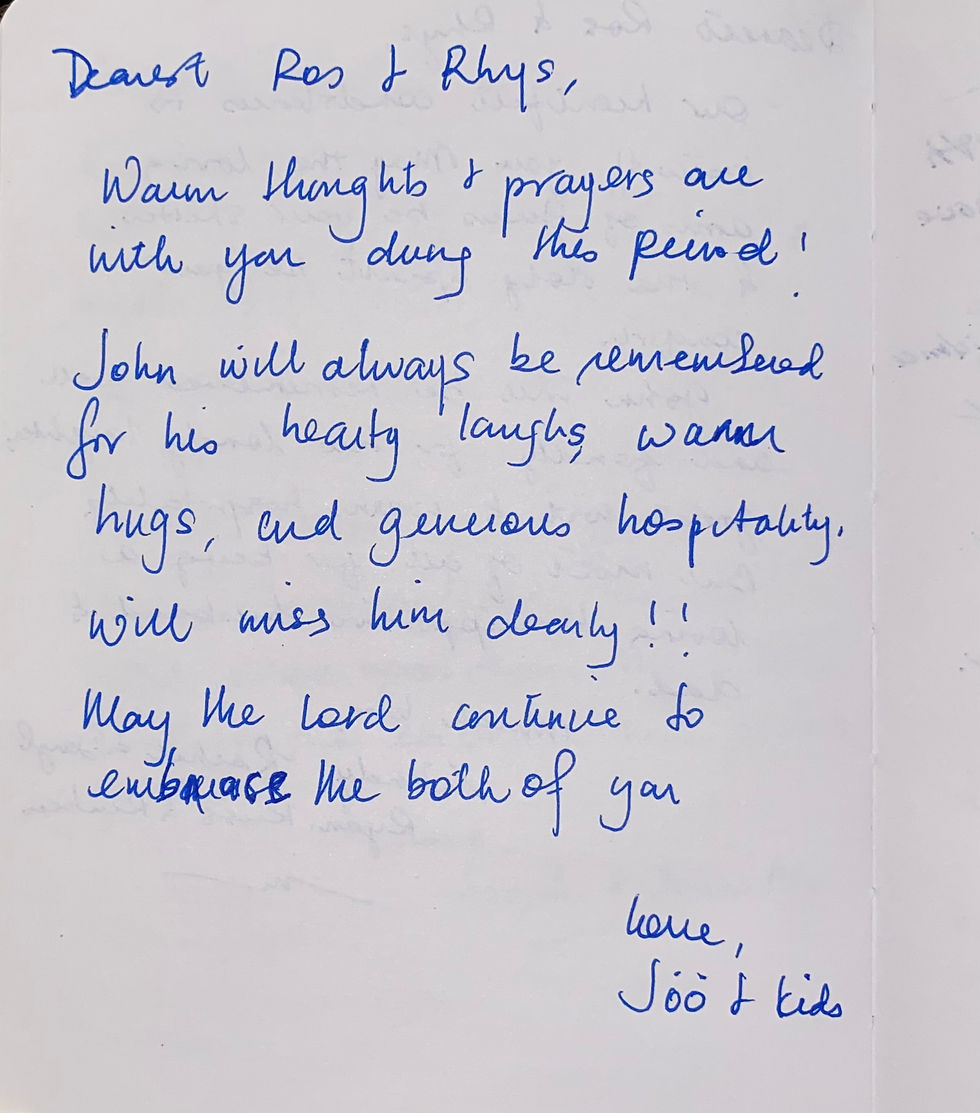 Dearest Ros & Rhys,
Warm thoughts & prayers are
with you during this period!
John will always be remembered
for his hearty laughs, warm
hugs, and generous hospitality.
will miss him dearly!!
May the Lord continue to
embrace the both of you
Love,
Jöö & kids